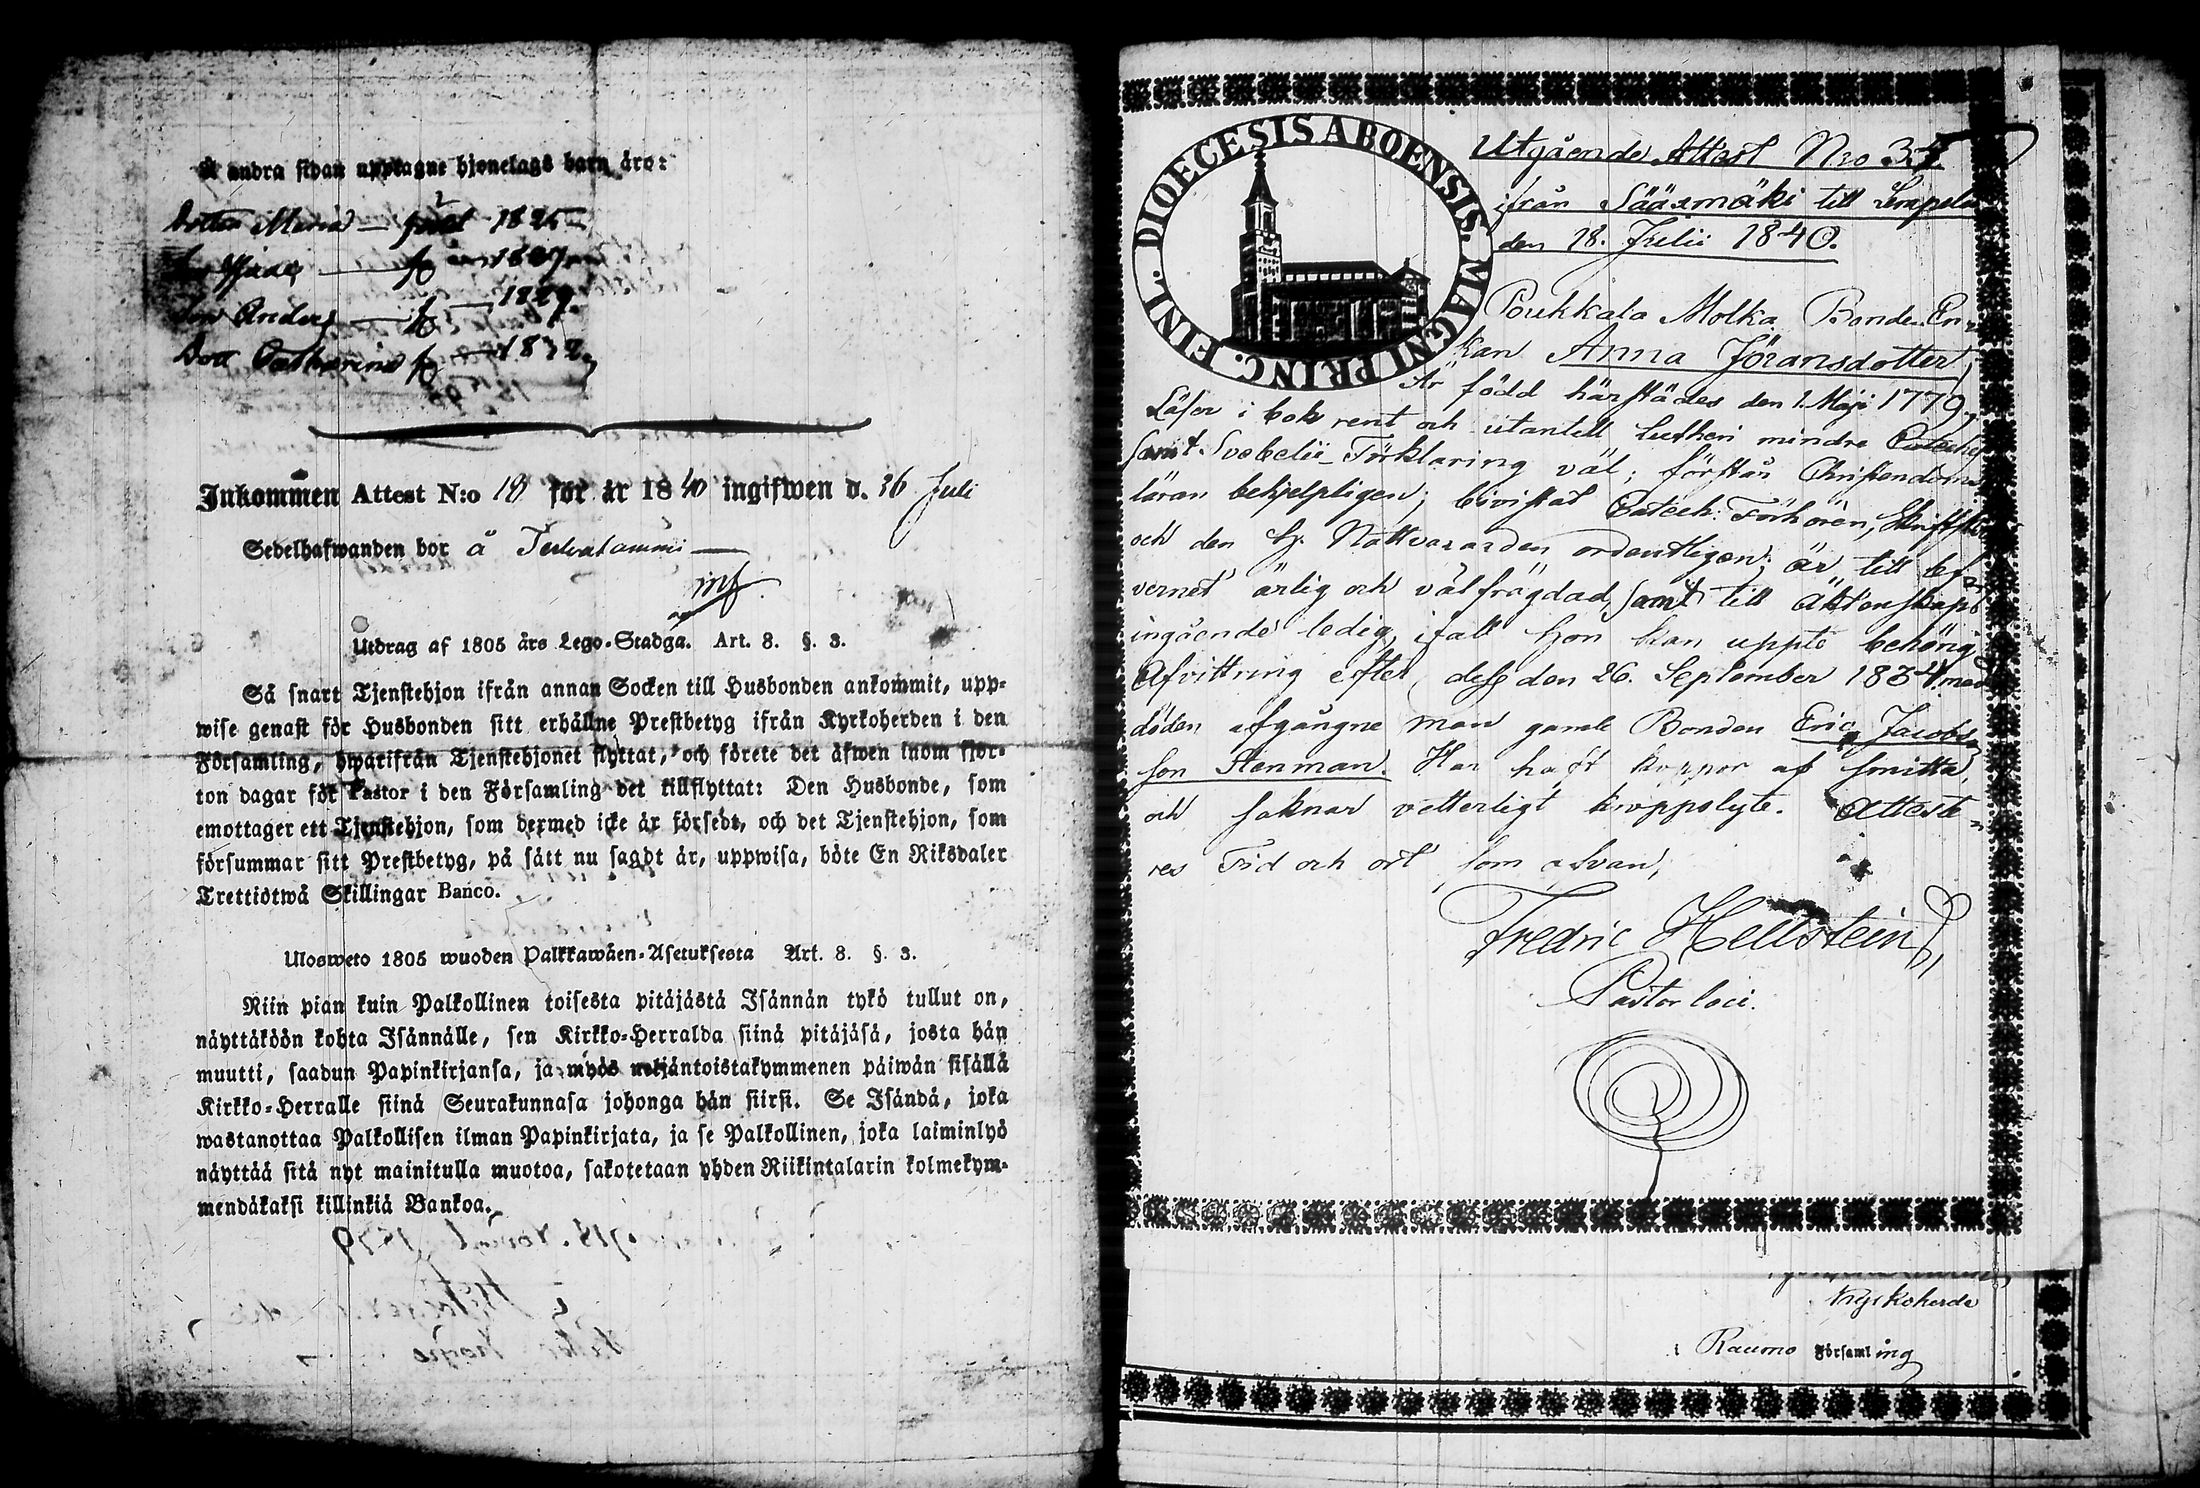 å andra sidan upptagne hjonelags barn äro:
dotter Maria — född 1825
Son — fö 1827
Son Anders — fö — 1829.
Dott Catharina fö 1832
Inkommen Attest N:o 18 för år 1840 ingifwen d. 26 Juli
Sedelhafwanden bor å
Utdrag af 1805 års Lego-Stadga. Art. 8. §. 3.
Så snart Tjenstehjon ifrån annan Socken till Husbonden ankommit, upp-
wise genast för Husbonden sitt erhållne Prestbetyg ifrån Kyrkoherden i den
Församling, hwarifrån Tjenstehjonet flyttat, och förete det äfwen inom fjor-
ton dagar för Pastor i den Församling det tillflyttat: Den Husbonde, som
emottager ett Tjenstehjon, som dermed icke är försedt, och det Tjenstehjon, som
försummar sitt Prestbetyg, på sätt nu sagdt är, uppwisa, böte En Riksdaler
Trettiotwå Skillingar Banco.
Ulosweto 1805 wuoden Palkkawäen-Asetuksesta Art. 8. §. 3.
Niin pian kuin Palkollinen toisesta pitäjästä Isännän tykö tullut on,
näyttäköön kohta Isännälle, sen Kirkko-Herralda siinä pitäjäsä, josta hän
muutti, saadun Papinkirjansa, ja myös neljäntoistakymmenen päiwän sisällä
Kirkko-Herralle siinä Seurakunnasa johonga hän siirsi. Se Isändä, joka
wastanottaa Palkollisen ilman Papinkirjata, ja se Palkollinen, joka laiminlyö
näyttää sitä nyt mainitulla muotoa, sakotetaan yhden Riikintalarin kolmekym-
mendäkaksi killinkiä Bankoa.
DIOECESIS ABOENSIS. MAGNI PRINC. FINL.
Utgående Attest Nro 35
ifrån Sääxmäki till Lempela
den 18. Julii 1840.
Poukkala Molka Bonde En-
kan Anna Jöransdotter,
Är född härstädes den 1. Maji 1779,
Läser i bok rent och utantill Lutheri mindre Cateches
samt Svebelii Förklaring väl; förstår Christendoms
läran behjelpligen; bivistat Catech: Förhören, Skriftskol
och den H. Nattvararden ordentligen; är till lef-
vernet ärlig och välfrägdad, samt till äktenskaps
ingående ledig, ifall hon kan uppte behörig
Afvittring efter dess den 26. September 1834 med
döden afgångne man gamle Bonden Eric Jacobs-
son Stenman. Har haft koppor af smitta,
och saknar vetterligt kroppslyte. Atteste-
res Tid och ort, som ofvan,
Fredric Hellstein,
Pastor loci.
Kyrkoherde
i Raumo Församling